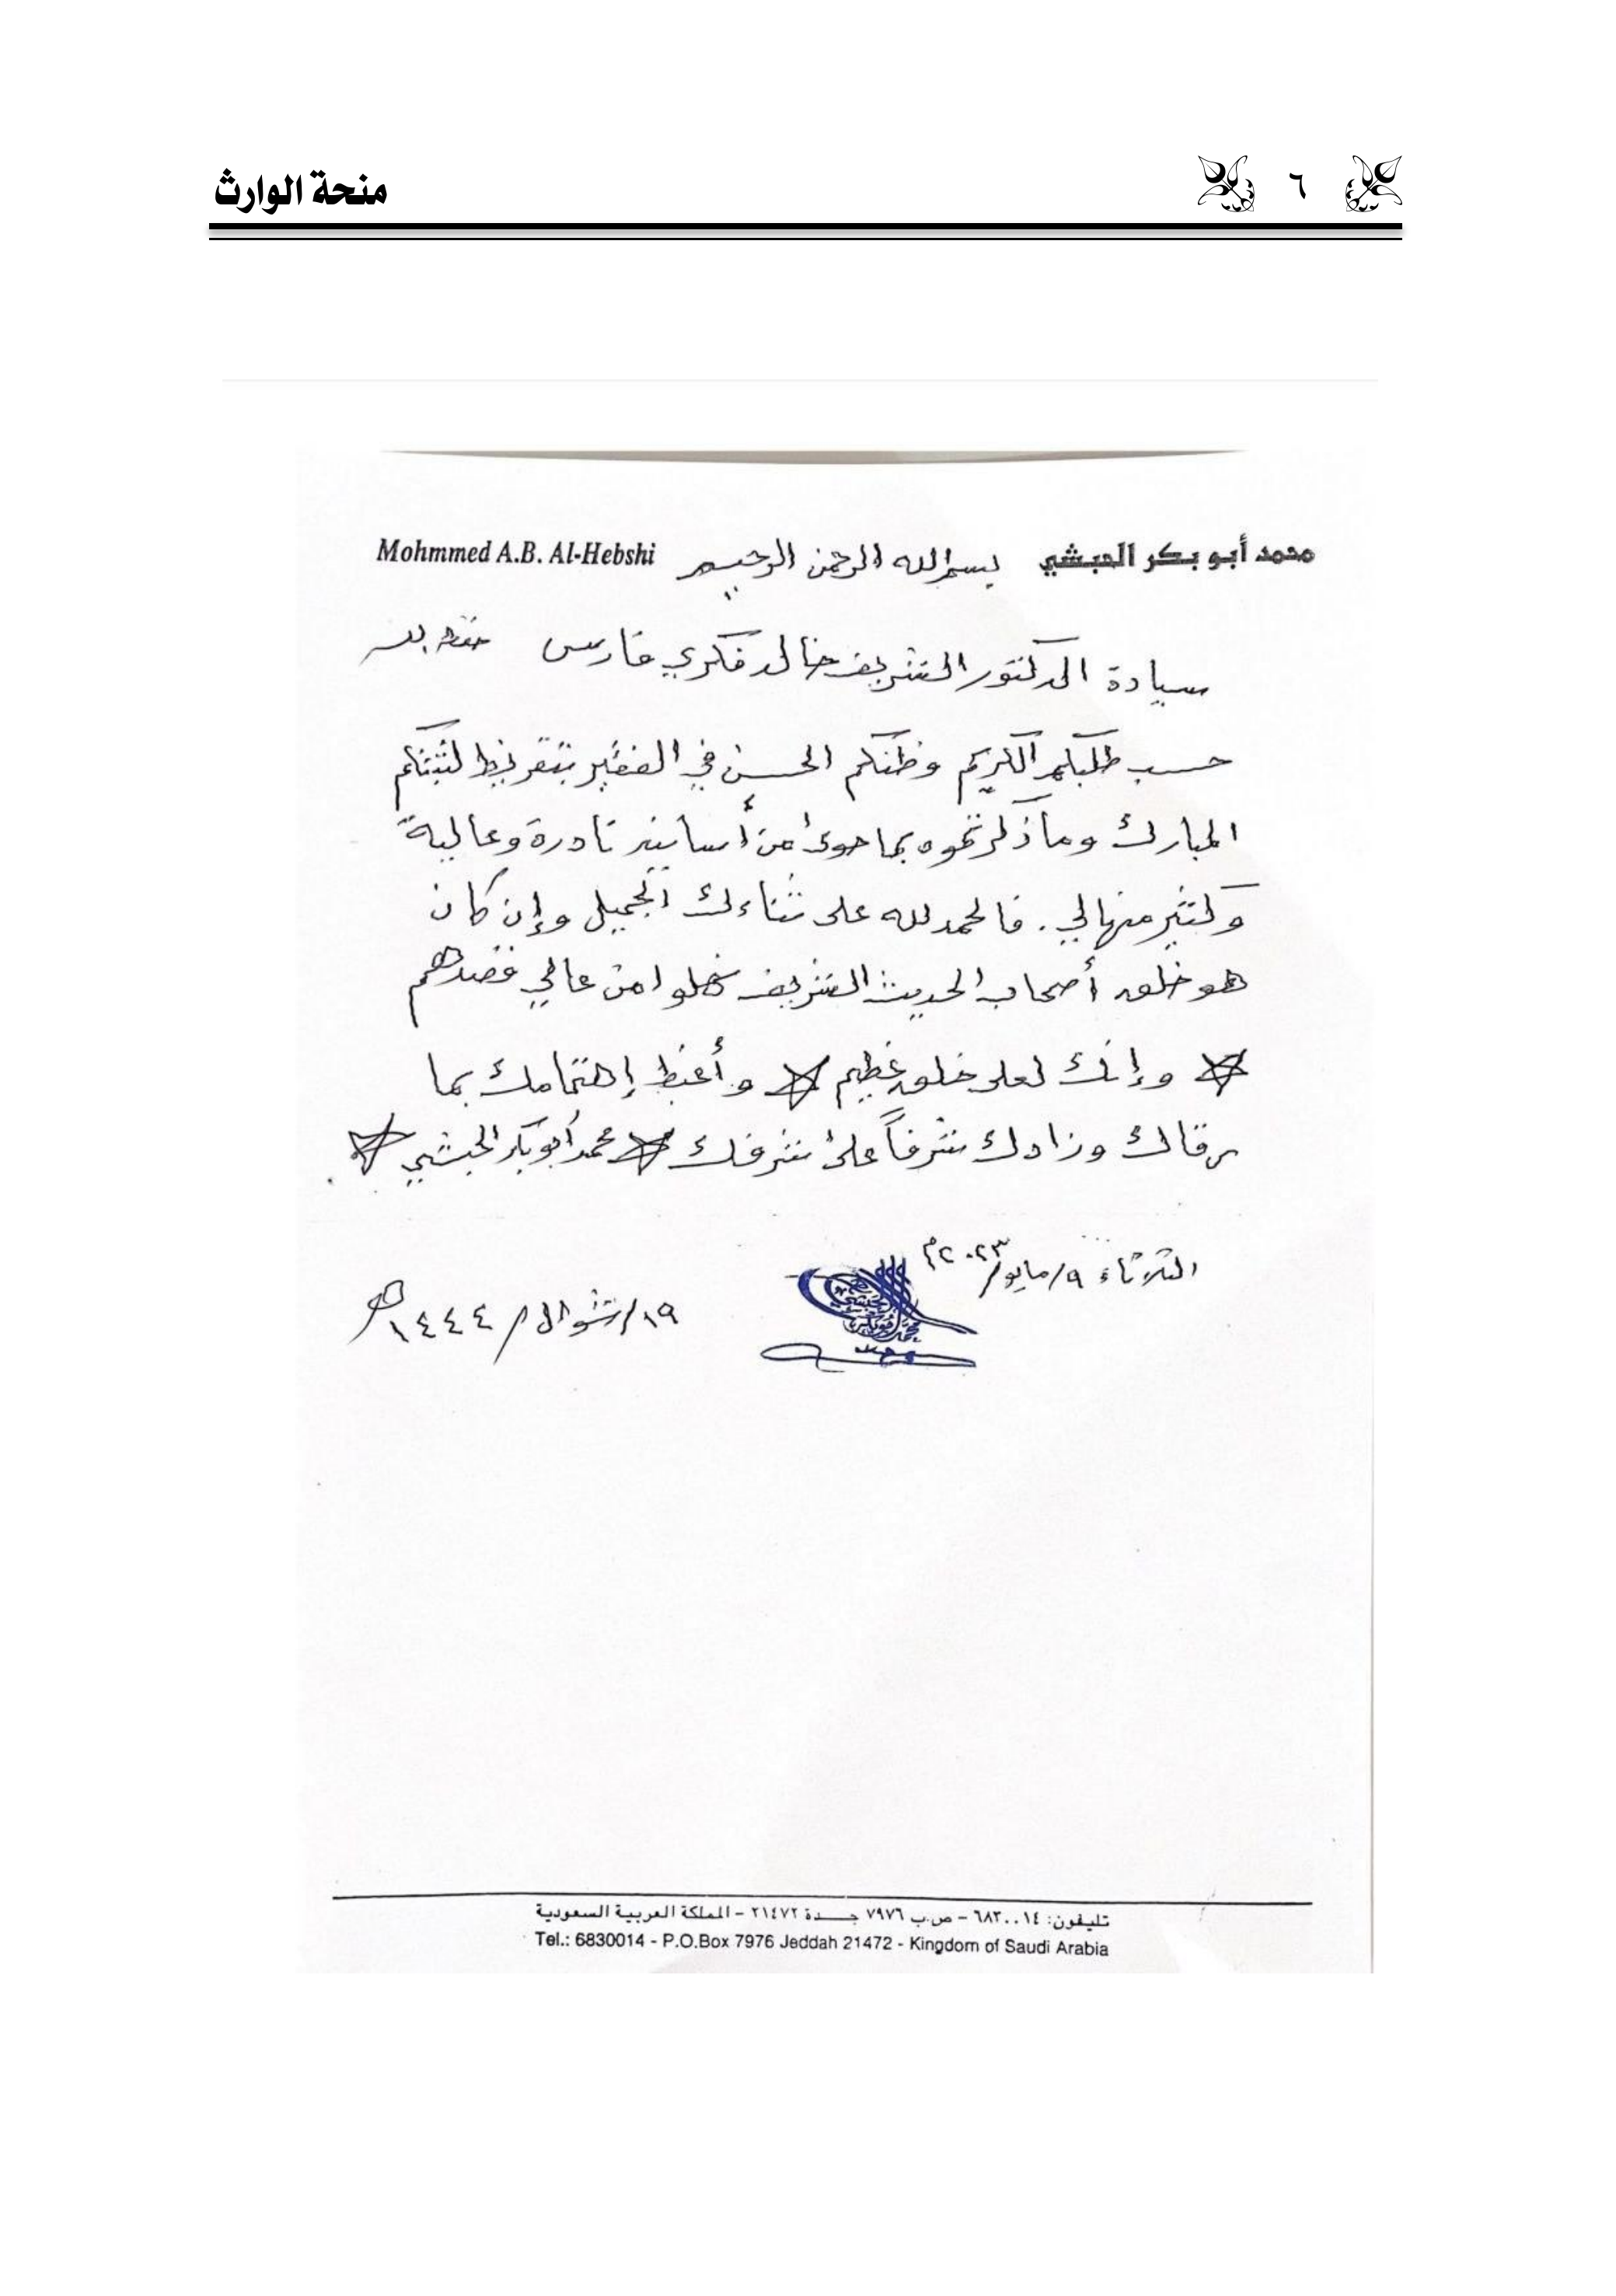 ٦
منحة الوارث
محمد أبو بكر الحبشي
بسم الله الرحمن الرحيم
Mohmmed A.B. Al-Hebshi
سيادة الدكتور الشريف خالد فكري فارس حفظه الله
حسب طلبكم الكريم وظنكم الحسن في الفقير بتقريظ لثبتكم
المبارك وما ذكرتموه بما حوى من أسانيد نادرة وعالية
وكثير منها لي . فالحمد لله على ثناءك الجميل وإن كان
هو خلق أصحاب الحديث الشريف نهلوا من عالي قصدهم
وإنك لعلى خلق عظيم وأغبط إهتمامك بما
رقاك وزادك شرفاً على شرفك محمد أبو بكر الحبشي
الثلاثاء ٩/مايو/٢٠٢٣م
١٩/شوال/١٤٤٤هـ
تليفون: ٦٨٣٠٠١٤ - ص.ب ٧٩٧٦ جدة ٢١٤٧٢ - المملكة العربية السعودية
Tel.: 6830014 - P.O.Box 7976 Jeddah 21472 - Kingdom of Saudi Arabia